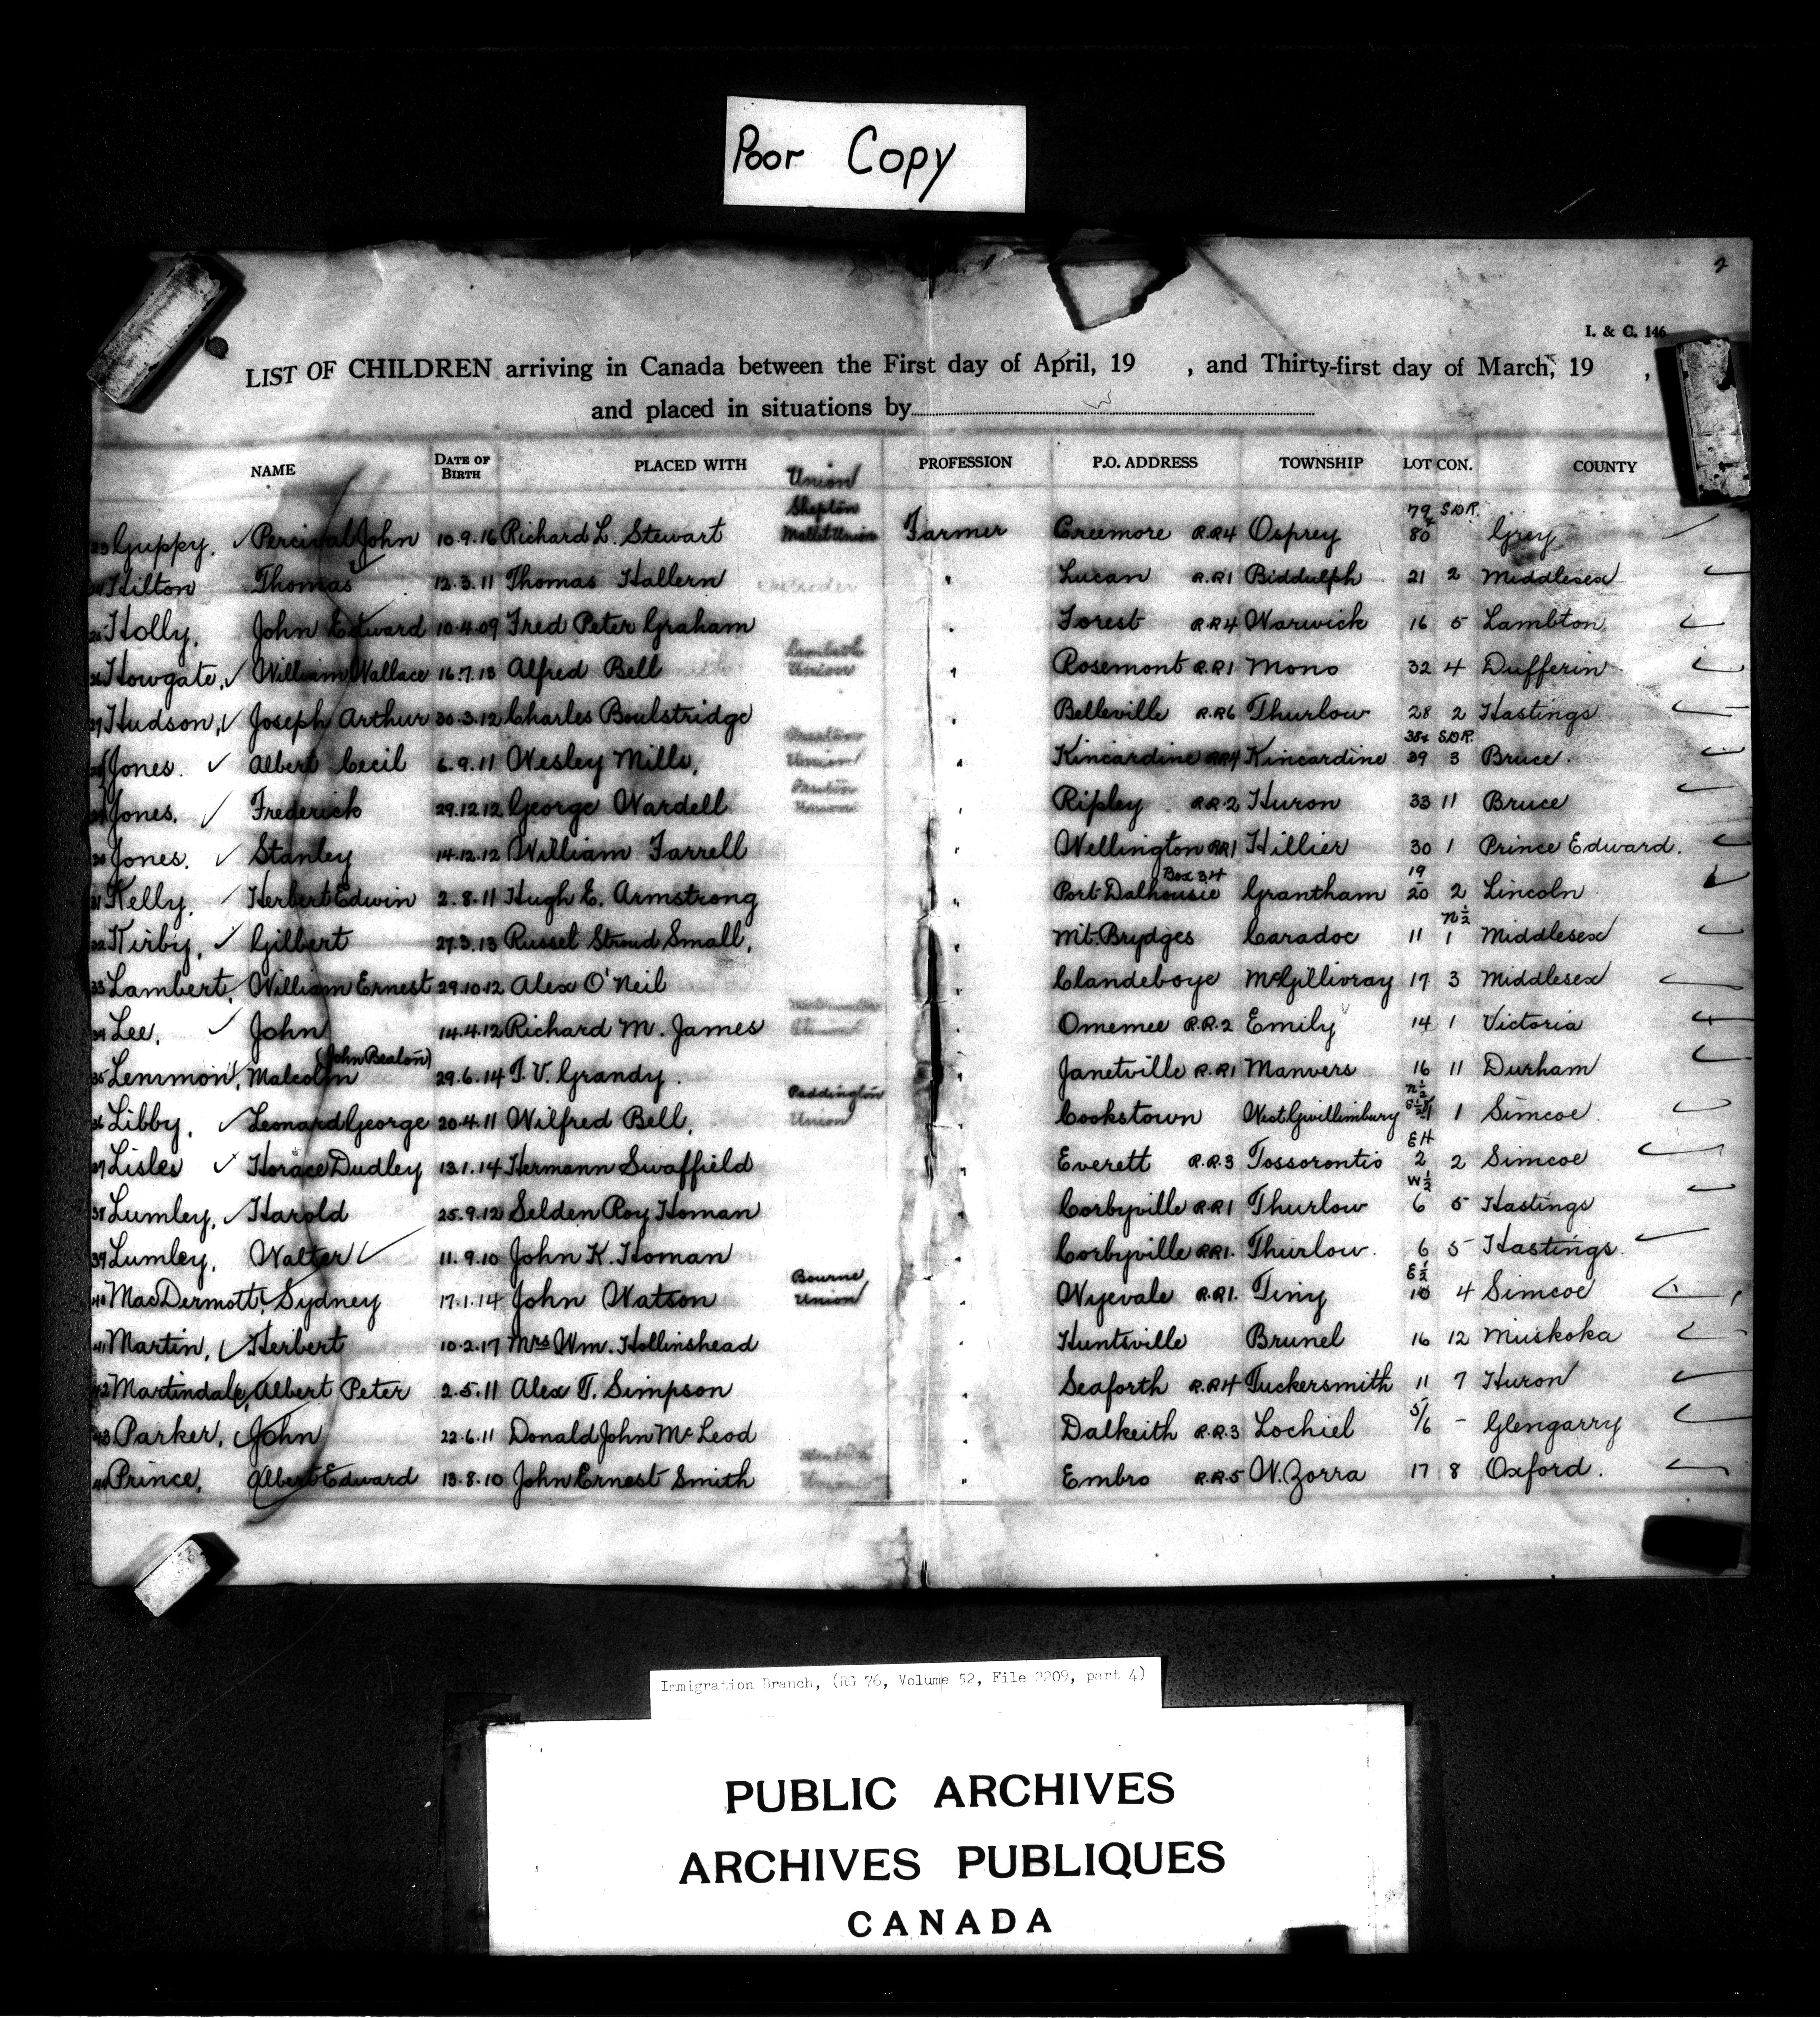 Poor Copy
2
I. & C. 146
LIST OF CHILDREN arriving in Canada between the First day of April, 19 , and Thirty-first day of March, 19 ,
and placed in situations by
NAME DATE OF BIRTH PLACED WITH Union PROFESSION P.O. ADDRESS TOWNSHIP LOT CON. COUNTY
Shepton 79 S.D.R.
23 Guppy, Percival John 10.9.16 Richard L. Stewart Mallet Union Farmer Creemore R.R4 Osprey 80 Grey
24 Hilton Thomas 12.3.11 Thomas Hallern " Lucan R.R1 Biddulph 21 2 Middlesex
25 Holly, John Edward 10.4.09 Fred Peter Graham " Forest R.R4 Warwick 16 5 Lambton
Lambeth
26 Howgate, William Wallace 16.7.13 Alfred Bell Union " Rosemont R.R1 Mono 32 4 Dufferin
27 Hudson, Joseph Arthur 30.3.12 Charles Boulstridge " Belleville R.R6 Thurlow 28 2 Hastings
38+ S.D.R.
28 Jones. Albert Cecil 6.9.11 Wesley Mills, Union " Kincardine RR4 Kincardine 39 3 Bruce.
29 Jones, Frederick 29.12.12 George Wardell Union " Ripley R.R.2 Huron 33 11 Bruce
30 Jones, Stanley 14.12.12 William Farrell " Wellington RR1 Hillier 30 1 Prince Edward.
Box 34 19
31 Kelly, Herbert Edwin 2.8.11 Hugh E. Armstrong " Port Dalhousie Grantham 20 2 Lincoln
N½
32 Kirby, Gilbert 27.3.13 Russel Stroud Small, " Mt. Brydges Caradoc 11 1 Middlesex
33 Lambert, William Ernest 29.10.12 Alex O'Neil " Clandeboye McGillivray 17 3 Middlesex
34 Lee, John 14.4.12 Richard M. James Union " Omemee R.R.2 Emily 14 1 Victoria
(John Bealon)
35 Lemmon, Malcolm 29.6.14 T. V. Grandy. " Janetville R.R1 Manvers 16 11 Durham
Paddington N½
36 Libby, Leonard George 20.4.11 Wilfred Bell, Union " Cookstown West Gwillimbury 1 Simcoe
EH
37 Lisles Horace Dudley 13.1.14 Hermann Swaffield " Everett R.R.3 Tossorontio 2 2 Simcoe
W½
38 Lumley, Harold 25.9.12 Selden Roy Homan " Corbyville R.R1 Thurlow 6 5 Hastings
39 Lumley, Walter 11.9.10 John K. Homan " Corbyville RR1. Thurlow. 6 5 Hastings.
Bourne E½
40 MacDermott, Sydney 17.1.14 John Watson Union " Wyevale R.R1. Tiny 10 4 Simcoe
41 Martin, Herbert 10.2.17 Mrs Wm. Hollinshead " Huntsville Brunel 16 12 Muskoka
42 Martindale, Albert Peter 2.5.11 Alex T. Simpson " Seaforth R.R4 Tuckersmith 11 7 Huron
43 Parker, John 22.6.11 Donald John McLeod " Dalkeith R.R.3 Lochiel 5/6 - Glengarry
44 Prince, Albert Edward 13.8.10 John Ernest Smith " Embro R.R.5 W. Zorra 17 8 Oxford.
Immigration Branch, (RG 76, Volume 52, File 2209, part 4)
PUBLIC ARCHIVES
ARCHIVES PUBLIQUES
CANADA